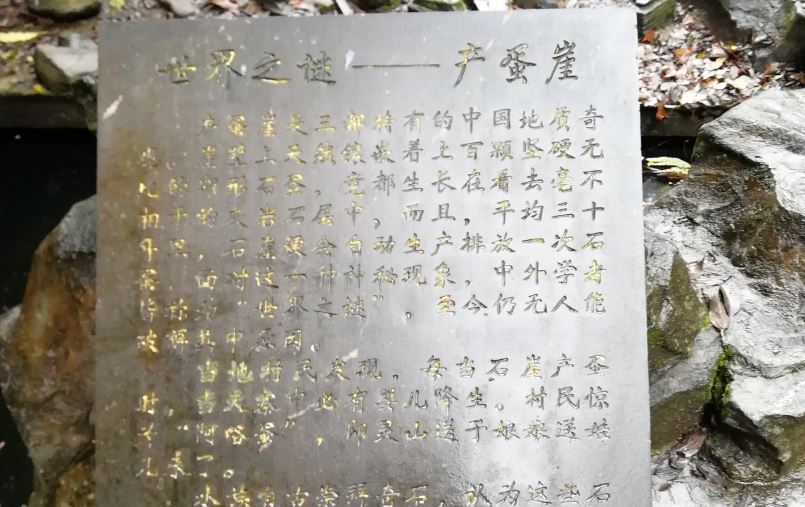 世界之谜——产蛋崖
产蛋崖是三都特有的中国地质奇
上天然镶嵌着上百颗坚硬无
比的形石蛋，竟都生长在看去毫不
相干的灰岩石层中，而且，平均三十
年，石崖便会自动生产排放一次石
蛋，面对这一种神秘现象，中外学者
为“世界之谜”，至今仍无人能
破解其中原因。
当地村民发现，每当石崖产蛋
时，当天寨中必有婴儿降生。村民惊
俗蛋”，即灵山送子娘娘送娃
儿来了。
水族自古崇拜奇石，认为这些石